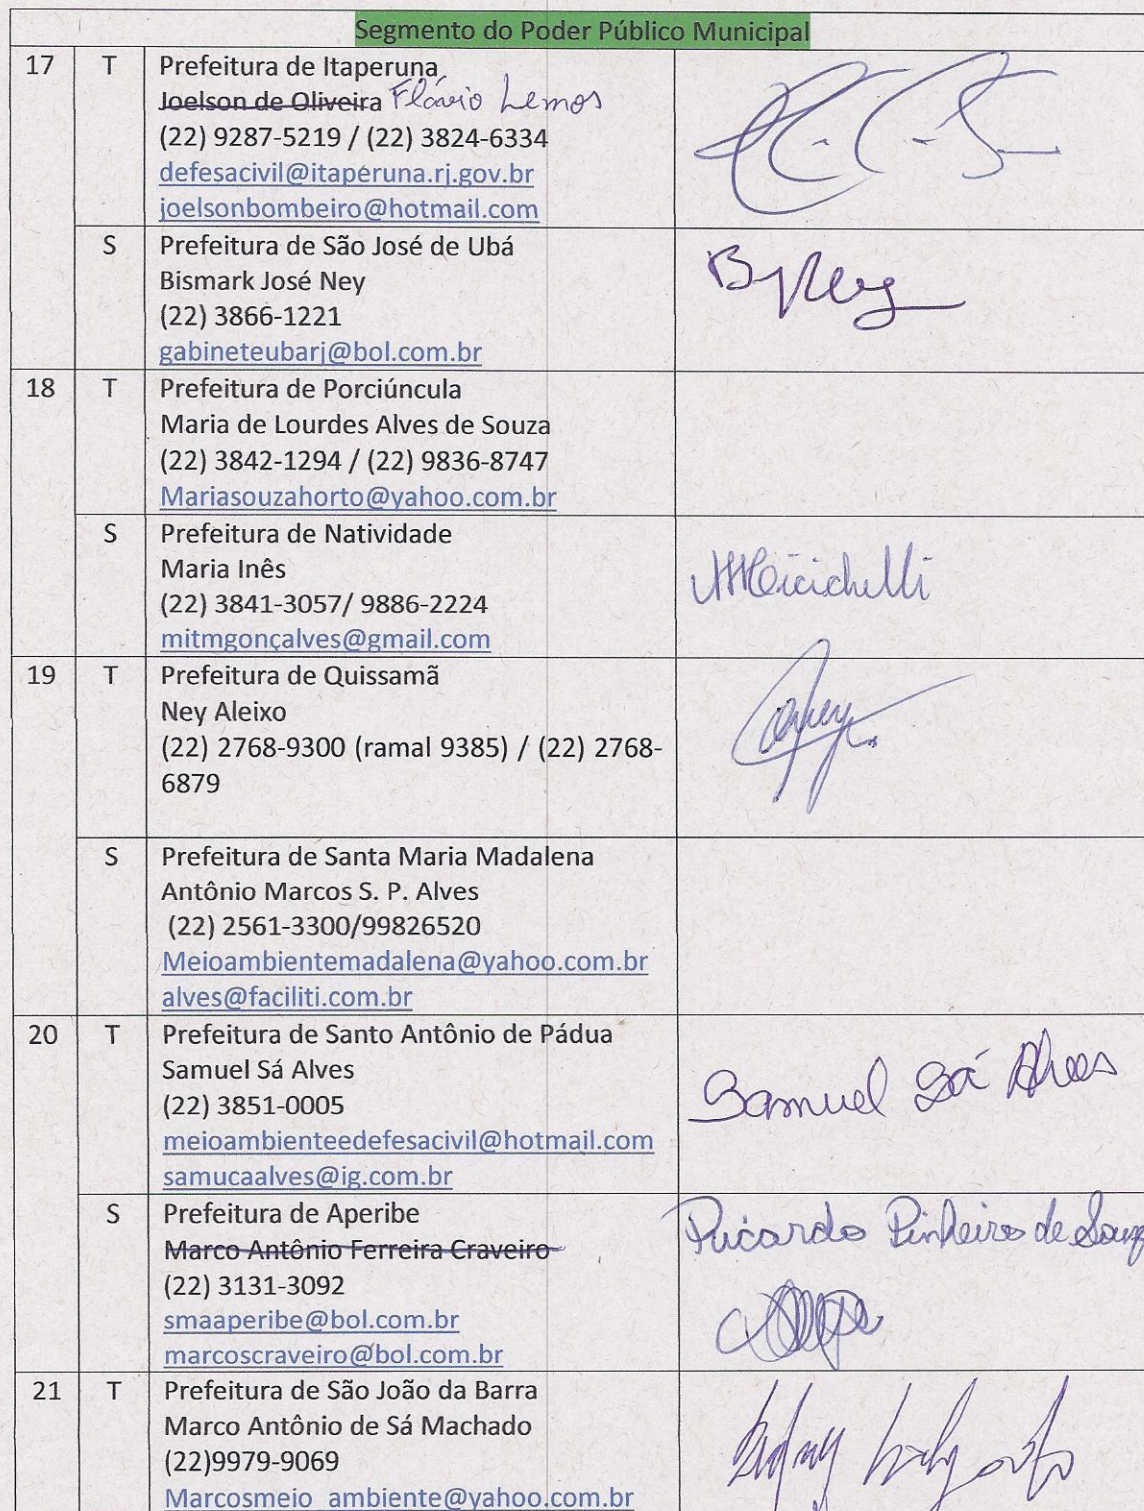 Segmento do Poder Público Municipal
17 T Prefeitura de Itaperuna
Joelson de Oliveira Flávio Lemos
(22) 9287-5219 / (22) 3824-6334
defesacivil@itaperuna.rj.gov.br
joelsonbombeiro@hotmail.com
S Prefeitura de São José de Ubá
Bismark José Ney
(22) 3866-1221
gabineteubarj@bol.com.br
18 T Prefeitura de Porciúncula
Maria de Lourdes Alves de Souza
(22) 3842-1294 / (22) 9836-8747
Mariasouzahorto@yahoo.com.br
S Prefeitura de Natividade
Maria Inês
(22) 3841-3057/ 9886-2224
mitmgonçalves@gmail.com
19 T Prefeitura de Quissamã
Ney Aleixo
(22) 2768-9300 (ramal 9385) / (22) 2768-
6879
S Prefeitura de Santa Maria Madalena
Antônio Marcos S. P. Alves
(22) 2561-3300/99826520
Meioambientemadalena@yahoo.com.br
alves@faciliti.com.br
20 T Prefeitura de Santo Antônio de Pádua
Samuel Sá Alves
(22) 3851-0005
meioambienteedefesacivil@hotmail.com
samucaalves@ig.com.br
Samuel Sá Alves
S Prefeitura de Aperibe
Marco Antônio Ferreira Craveiro
(22) 3131-3092
smaaperibe@bol.com.br
marcoscraveiro@bol.com.br
Ricardo Pinheiro de Souza
21 T Prefeitura de São João da Barra
Marco Antônio de Sá Machado
(22)9979-9069
Marcosmeio_ambiente@yahoo.com.br